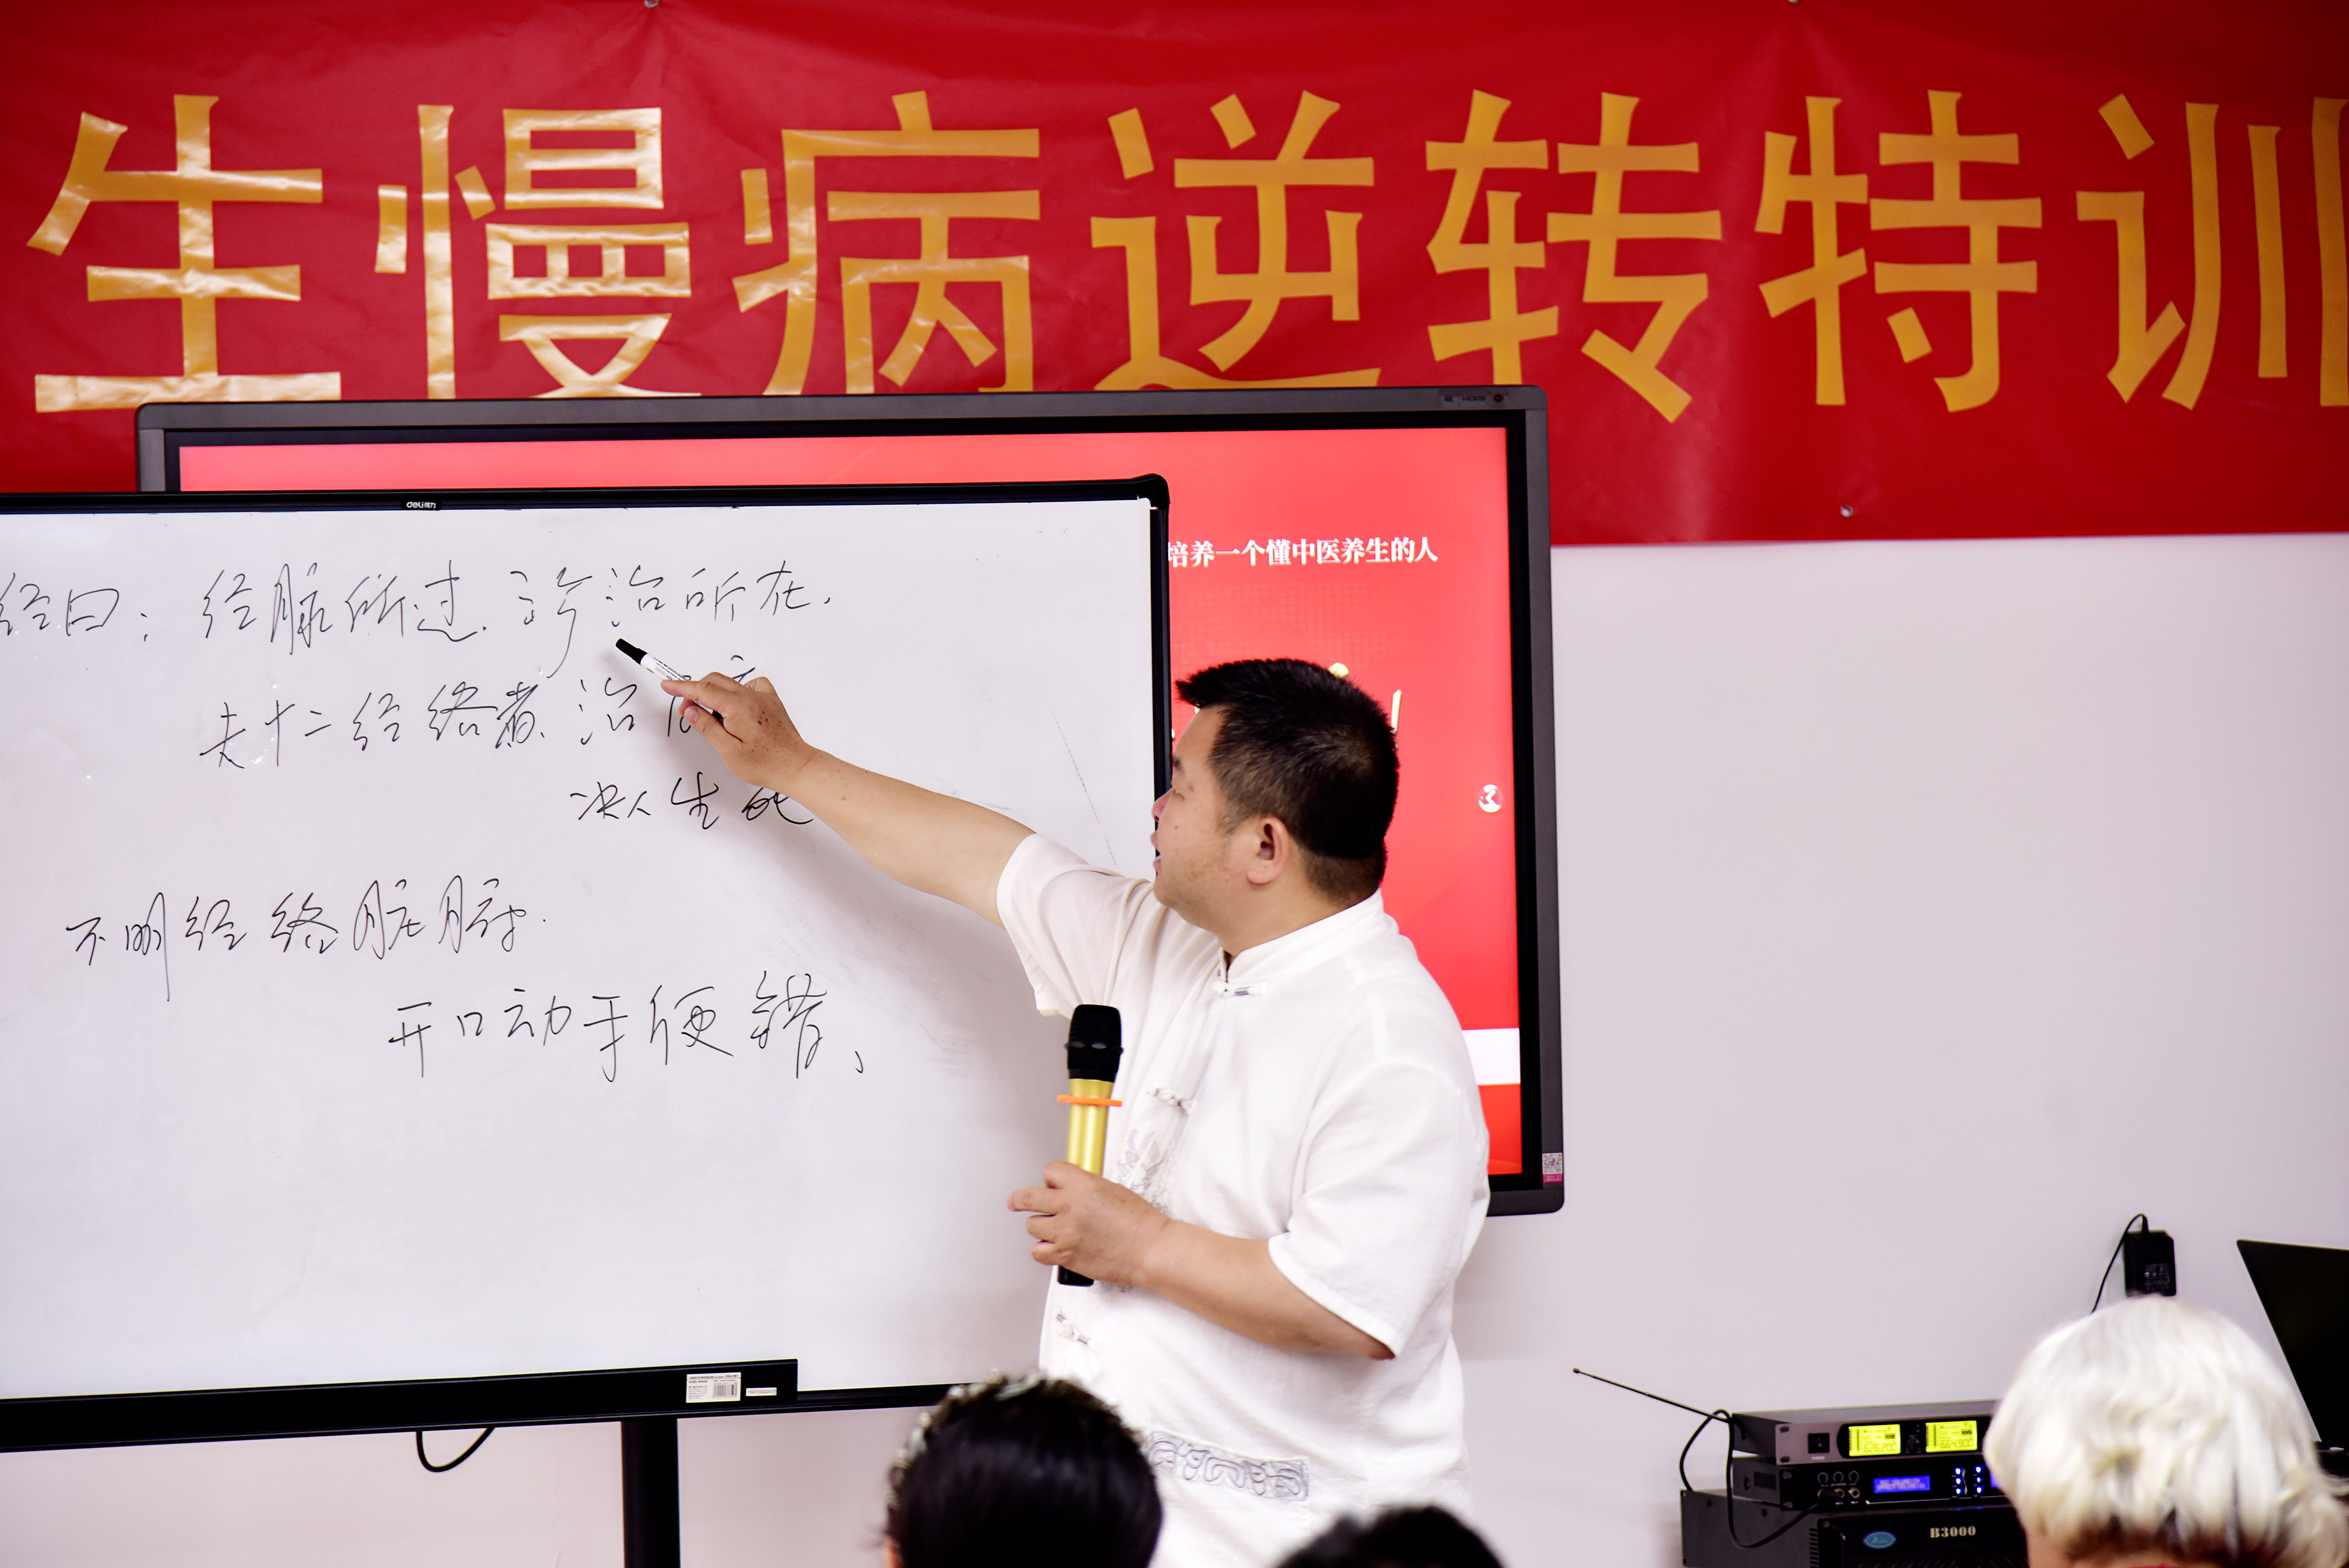 生慢病逆转特训
deli得力
培养一个懂中医养生的人
经曰：经脉所过，诊治所在，
夫十二经络者，治
决人生死
不明经络脏腑，
开口动手便错、
B3000